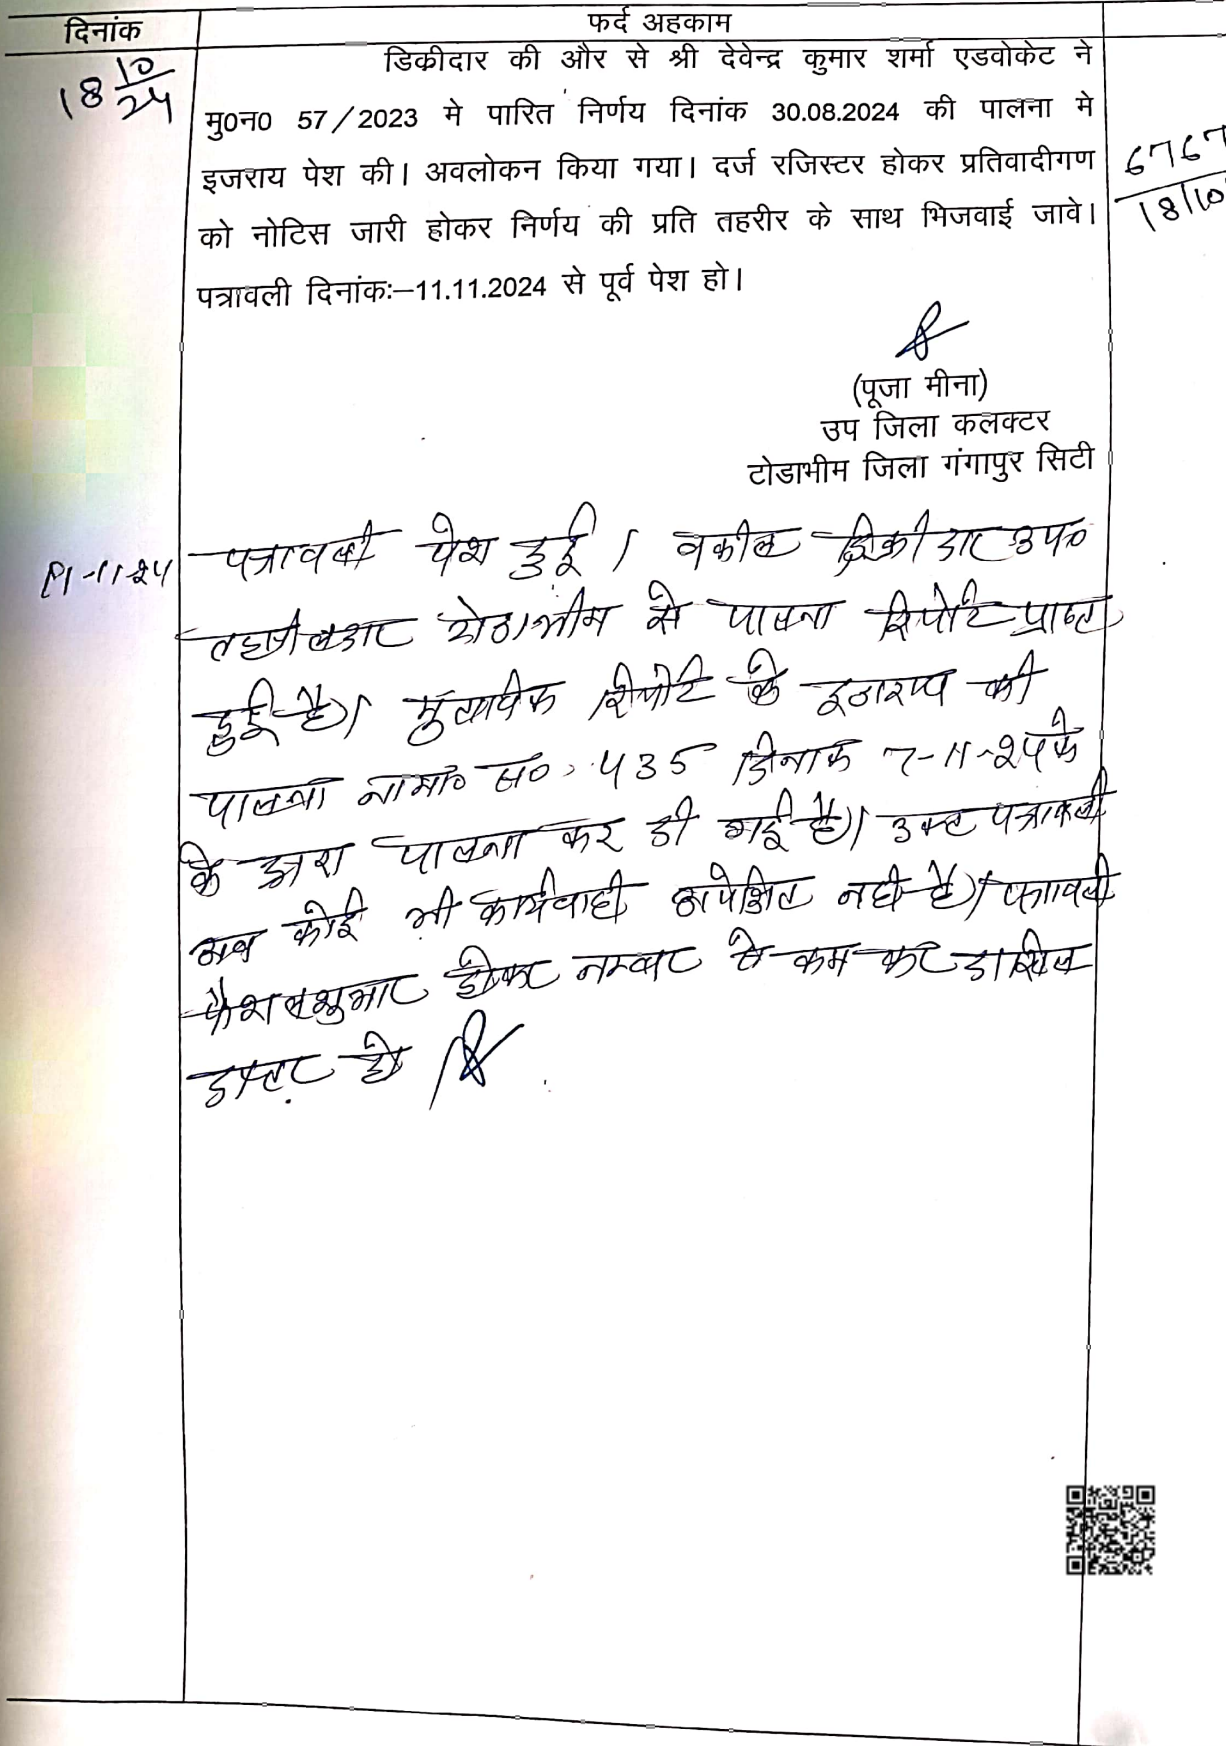 दिनांक
फर्द अहकाम
18 10/24
डिक्रीदार की और से श्री देवेन्द्र कुमार शर्मा एडवोकेट ने
मु0न0 57/2023 मे पारित निर्णय दिनांक 30.08.2024 की पालना मे
इजराय पेश की। अवलोकन किया गया। दर्ज रजिस्टर होकर प्रतिवादीगण
को नोटिस जारी होकर निर्णय की प्रति तहरीर के साथ भिजवाई जावे।
पत्रावली दिनांकः–11.11.2024 से पूर्व पेश हो।
6767
18/10
(पूजा मीना)
उप जिला कलक्टर
टोडाभीम जिला गंगापुर सिटी
-11-24
पत्रावली पेश हुई। वकील डिक्रीदार उप०
तहसीलदार टोडाभीम से पालना रिपोर्ट प्राप्त
हुई है। मुताबिक रिपोर्ट के इजराय की
पालना नामा० सं० 435 दिनांक 7-11-24 के
के द्वारा पालना कर दी गई है। उक्त पत्रावली
अब कोई भी कार्यवाही अपेक्षित नही है। पत्रावली
फैशलशुमार होकर नम्बर से कम कर दाखिल
दफ्तर हो